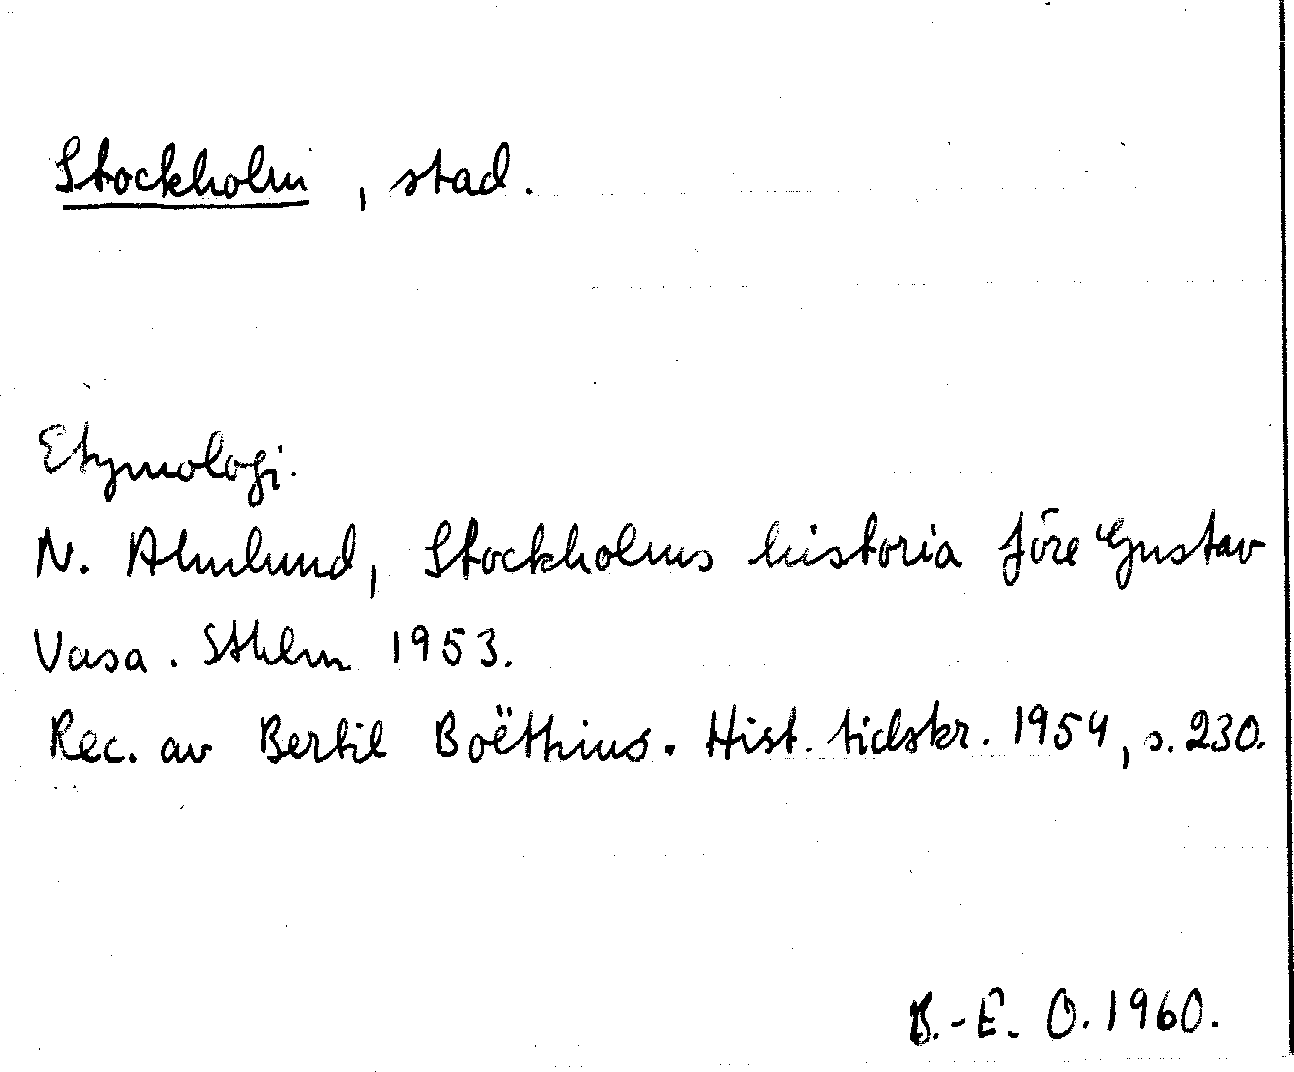 Stockholm, stad.
Etymologi.
N. Ahnlund, Stockholms historia före Gustav
Vasa. Sthlm 1953.
Rec. av Bertil Boëthius. Hist. tidskr. 1954, s. 230.
B.-E. O. 1960.